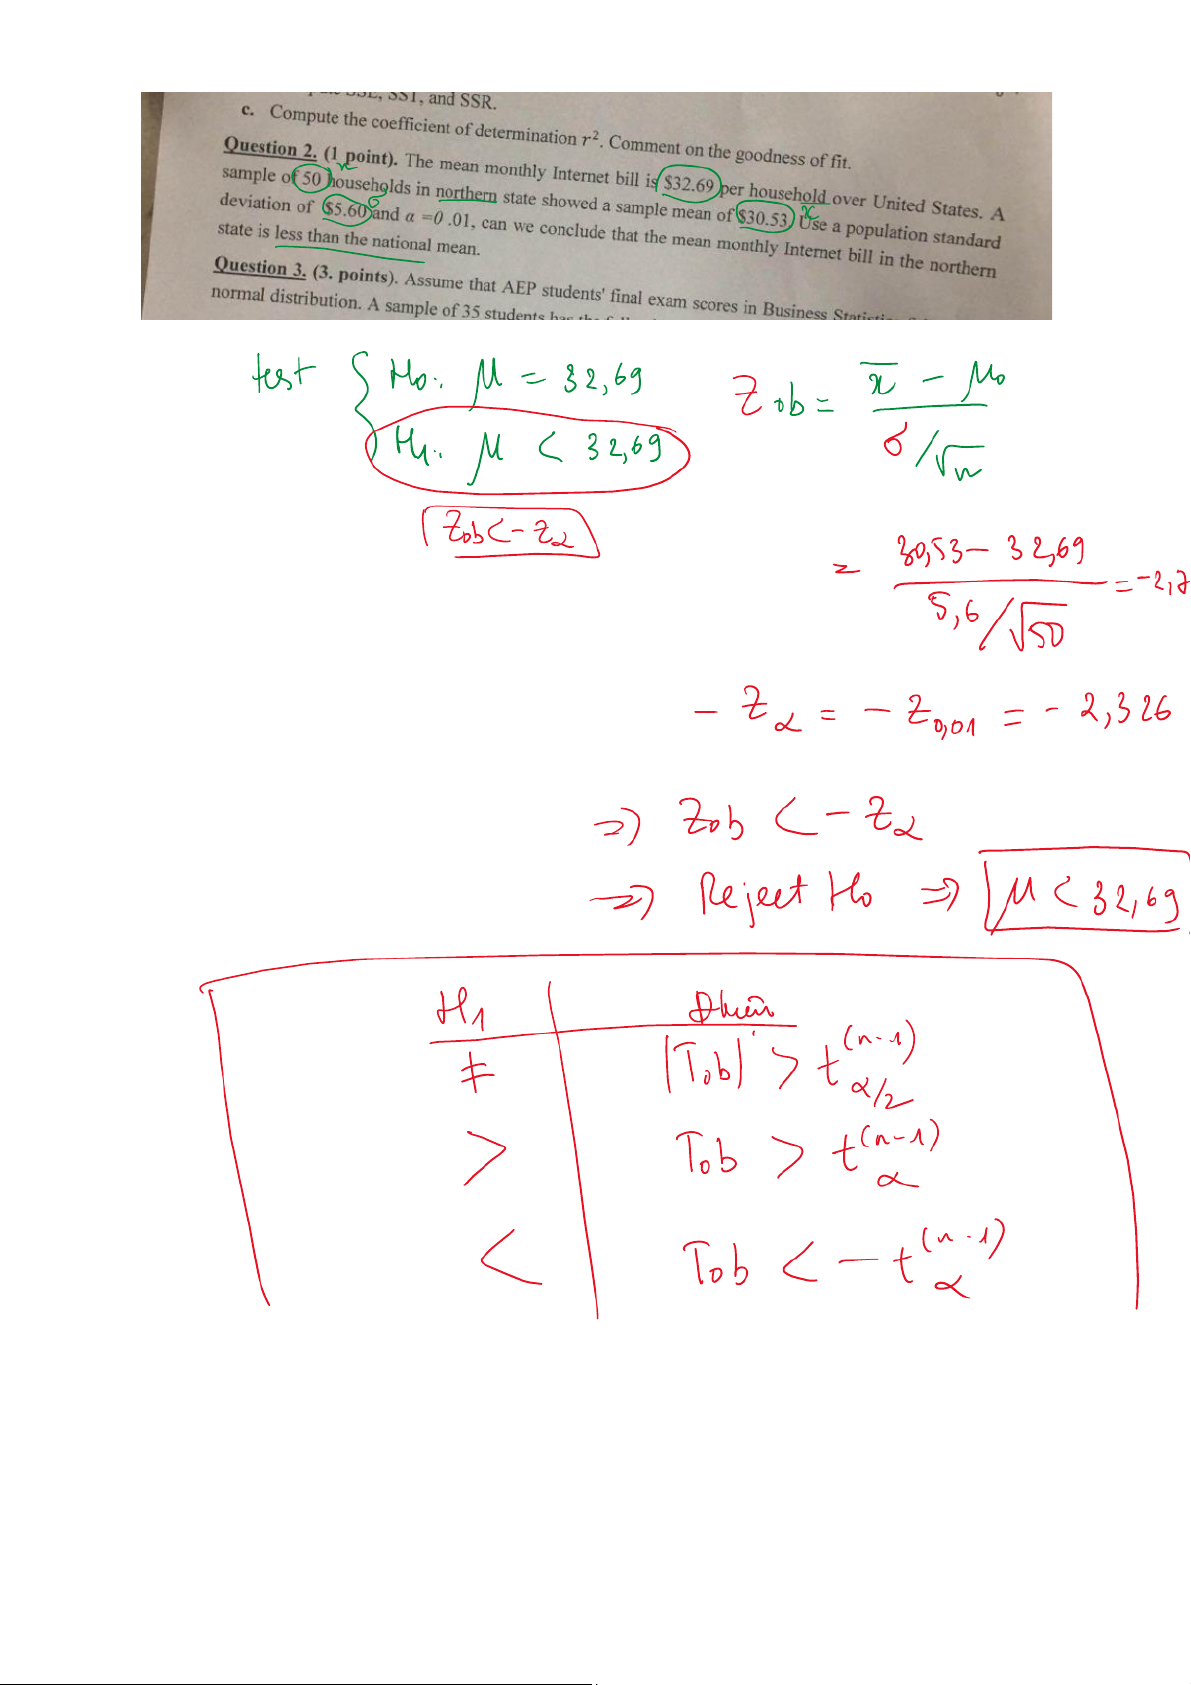 SSE, SST, and SSR.
c. Compute the coefficient of determination r². Comment on the goodness of fit.
Question 2. (1 point). The mean monthly Internet bill is $32.69 per household over United States. A
n
sample of 50 households in northern state showed a sample mean of $30.53. Use a population standard
σ
x̄
deviation of $5.60 and α =0 .01, can we conclude that the mean monthly Internet bill in the northern
state is less than the national mean.
Question 3. (3. points). Assume that AEP students' final exam scores in Business
normal distribution. A sample of 35 students has the
test { H₀: μ = 32,69
H₁: μ < 32,69
Zob < - Zα
Zob = (x̄ - μ₀) / (σ/√n)
= (30,53 - 32,69) / (5,6/√50) = -2,7
- Zα = - Z0,01 = - 2,326
=> Zob < - Zα
=> Reject H₀ => μ < 32,69
H₁
≠ |Tob| > t(n-1) α/2
> Tob > t(n-1) α
< Tob < - t(n-1) α